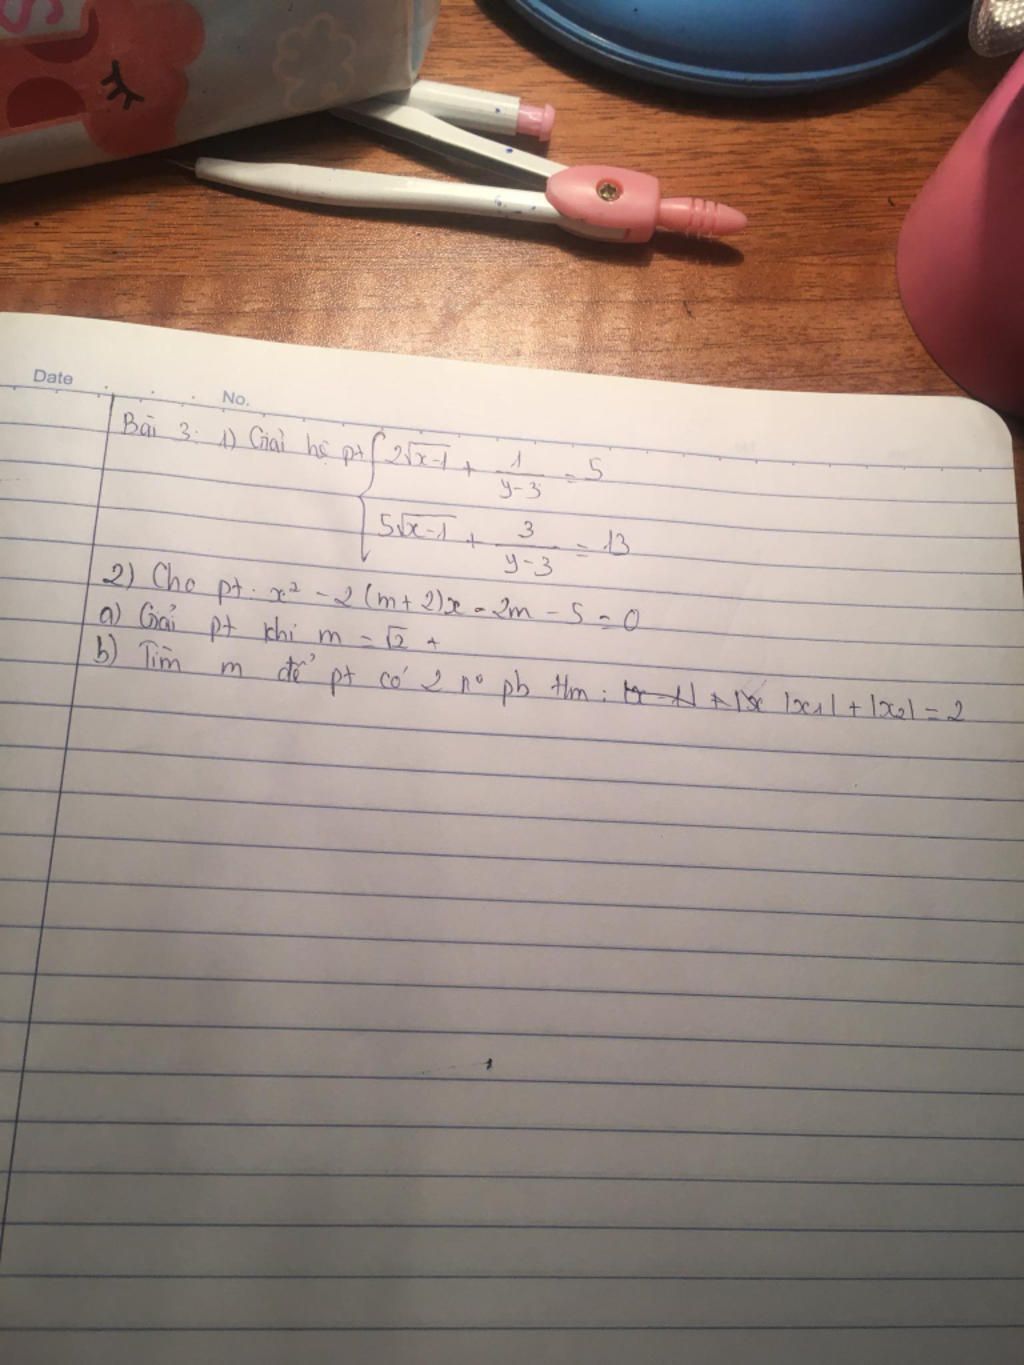 Date No.
Bài 3: 1) Giải hệ pt { 2√x-1 + 1/y-3 = 5
5√x-1 + 3/y-3 = 13
2) Cho pt: x² - 2(m+2)x - 2m - 5 = 0
a) Giải pt khi m = √2 +
b) Tìm m để pt có 2 n° pb t/m: |x1| + |x2| = 2